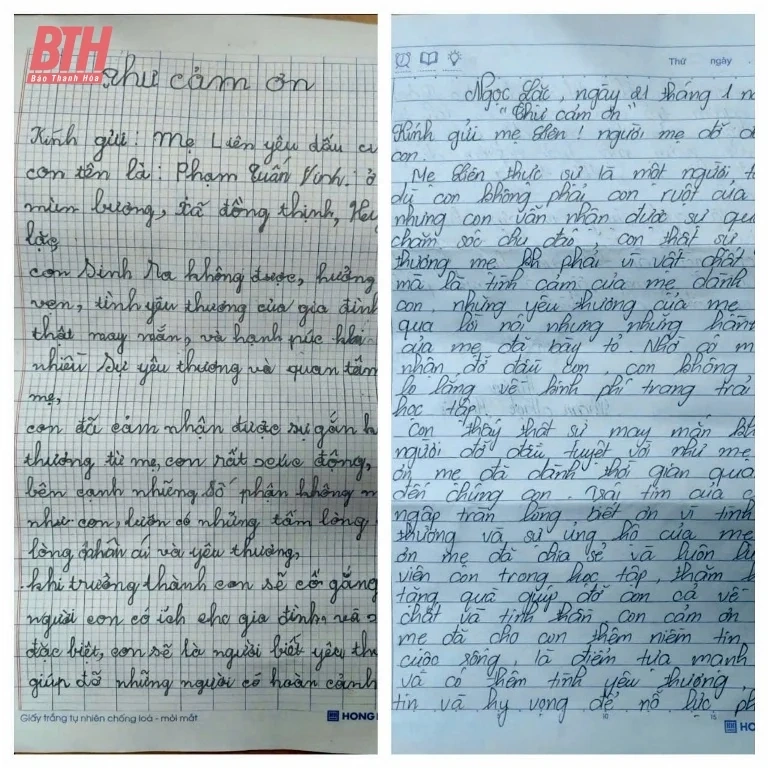 BTH
Báo Thanh Hóa
Thư cảm ơn
Kính gửi: Mẹ Liên yêu dấu c
con tên là: Phạm Tuấn Vinh. ở
mùn bương, xã đồng thịnh,
lặc,
con Sinh ra không được, hưởng
vẹn, tình yêu thương của gia đình
thật may mắn, và hạnh púc khi
nhiều sự yêu thương và quan tâm
mẹ,
con đã cảm nhận được sự gắn k
thương từ mẹ, con rất xúc động,
bên cạnh những số phận không m
như con, luôn có những tấm lòng
lòng nhân ái và yêu thương,
khi trưởng thành con sẽ cố gắng
người con có ích cho gia đình, và
đặc biệt, con sẽ là người biết yêu th
giúp đỡ những người có hoàn cảnh
Giấy trắng tự nhiên chống loá - mỏi mắt
HONG
Thứ ngày
Ngọc Lặc, ngày 21 tháng 1 n
"Thư cảm ơn"
Kính gửi mẹ Liên! người mẹ đỡ đ
con.
Mẹ Liên thực sự là một người, t
dù con không phải con ruột của
nhưng con vẫn nhận được sự qu
chăm sóc chu đáo, con thật sự
thương mẹ kh phải vì vật chất
mà là tình cảm của mẹ dành
con, những yêu thương của mẹ
qua lời nói nhưng những hành
của mẹ đã bày tỏ. Nhờ có m
nhận đỡ đầu con, con không
lo lắng về kinh phí trang trải
học tập.
Con thấy thật sự may mắn kh
người đỡ đầu tuyệt vời như mẹ
ơn mẹ đã dành thời gian qua
đến chúng con. Trái tim của c
ngập tràn lòng biết ơn vì tình
thương và sự ủng hộ của mẹ
ơn mẹ đã chia sẻ và luôn
viên con trong học tập, thăm
tặng quà giúp đỡ con cả về
chất và tinh thần con cảm ơn
mẹ đã cho con thêm niềm tin
cuộc sống, là điểm tựa mạnh
và có thêm tình yêu thương
tin và hy vọng để nỗ lực ph
10 15
HO